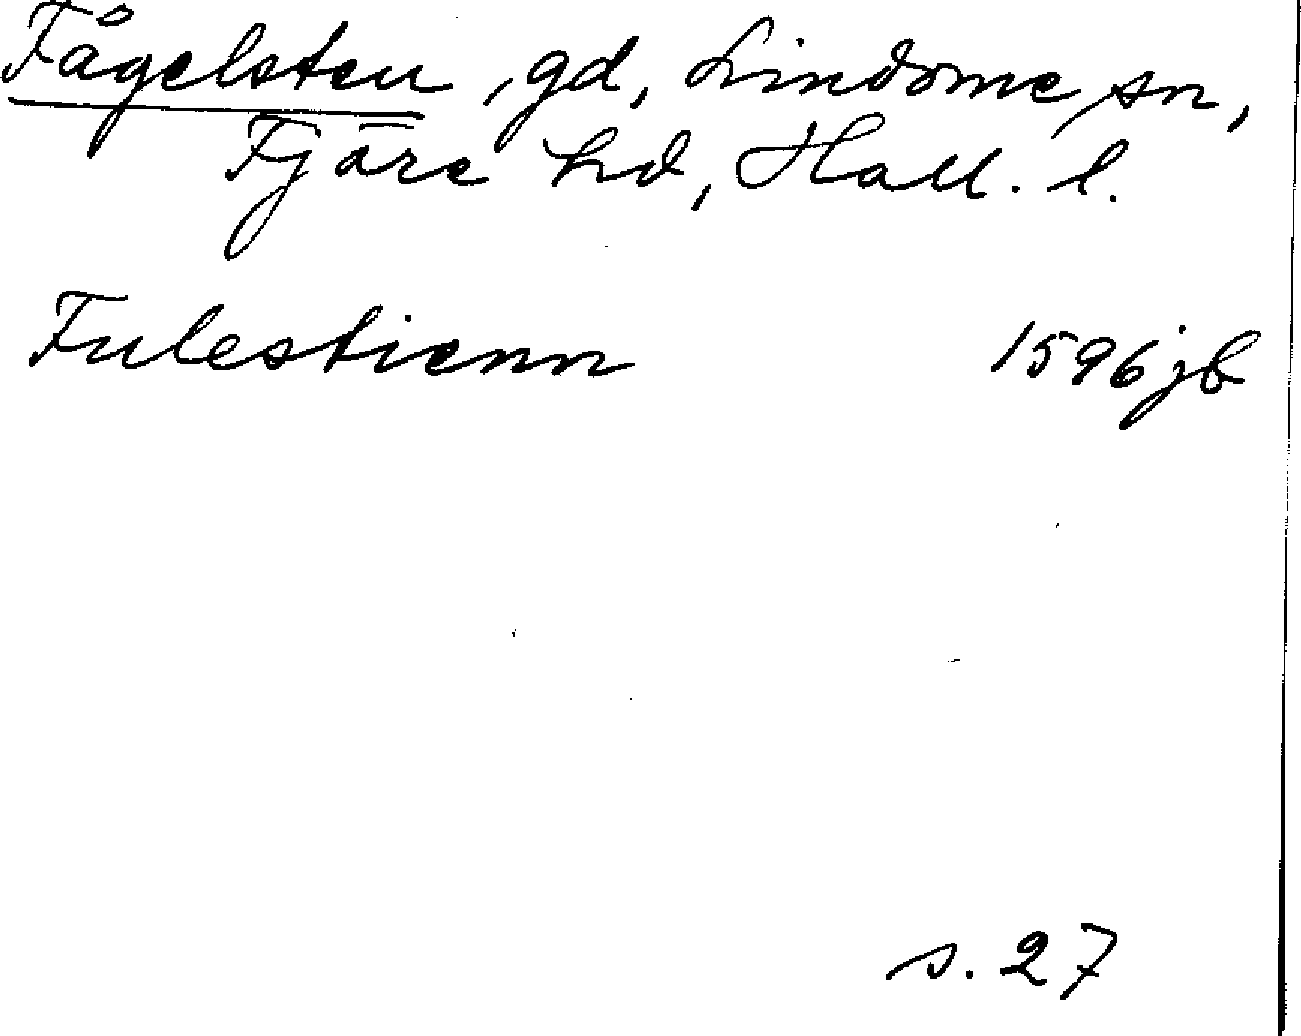 Fågelsten, gd, Lindome sn,
Fjäre hd, Hall. l.
Fulestienn 1596 jb
s. 27